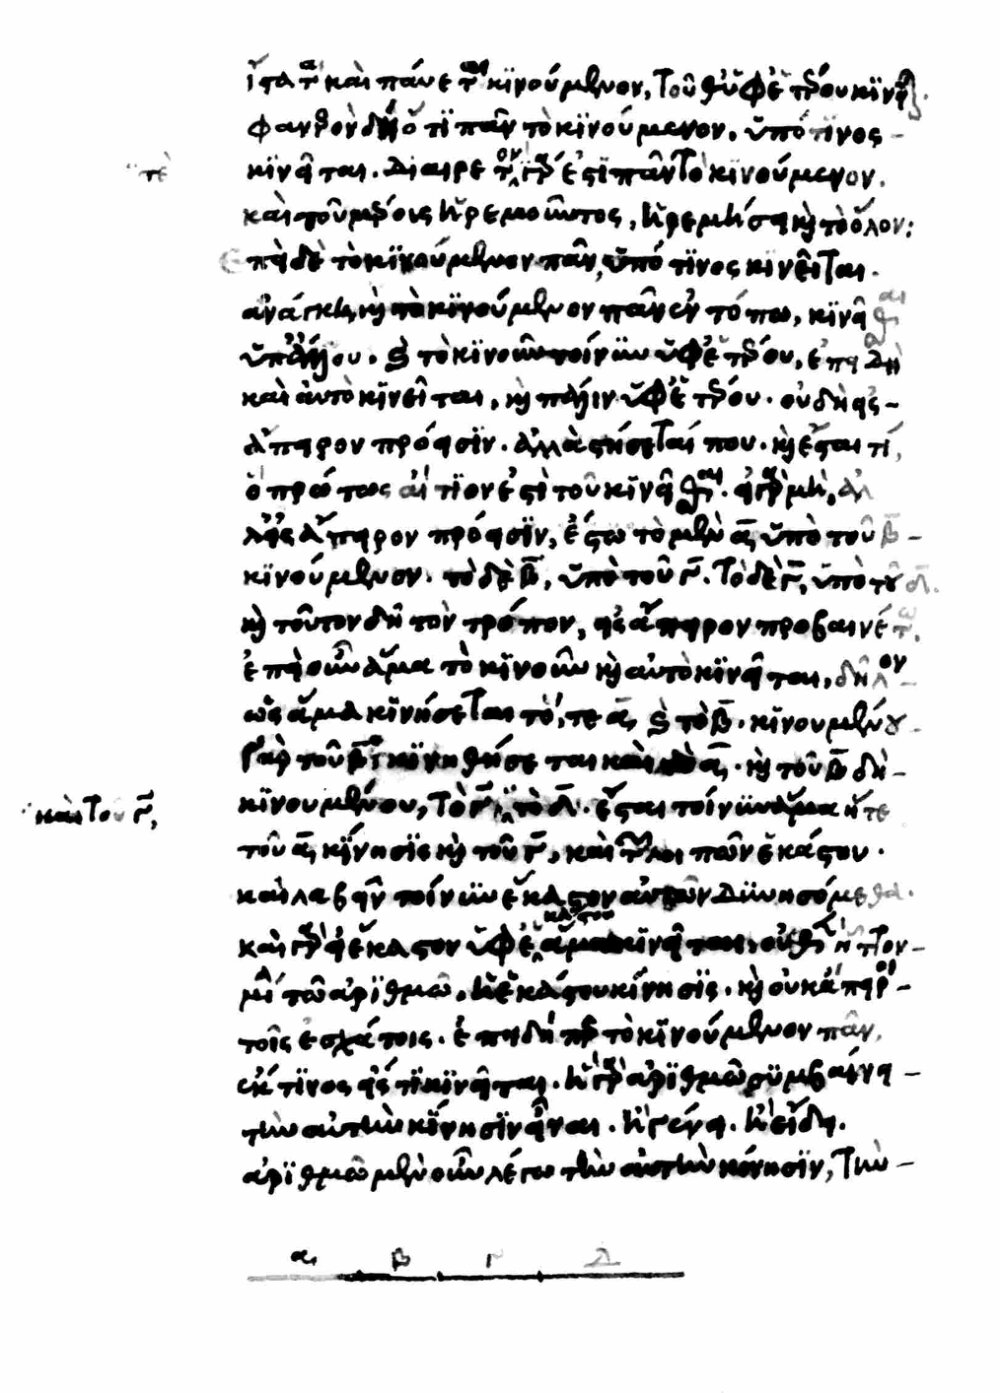 ἵσταται καὶ παύεται κϊνούμενον, τοῦθ' ὑφ' ἑτέρου κϊνεῖται.
φανερὸν δὴ ὅτϊ πᾶν τὸ κϊνούμενον, ὑπό τϊνος
κϊνεῖται. διαιρετόν γάρ ἐστϊ πᾶν τὸ κϊνούμενον.
τὲ
καὶ τοῦ μέρους ἠρεμοῦντος, ἠρεμήσει καὶ τὸ ὅλον:
Ἐπεὶ δὲ τὸ κϊνούμενον πᾶν, ὑπό τϊνος κϊνεῖται.
ἀνάγκη καὶ τὸ κϊνούμενον πᾶν ἐν τόπω, κϊνεῖσθαι
ὑπ' ἄλλου. καὶ τὸ κϊνοῦν τοίνϋν ὑφ' ἑτέρου, ἐπειδὴ
καὶ αὐτὸ κϊνεῖται, καὶ πάλϊν ὑφ' ἑτέρου. οὐ δὴ εἰς
ἄπειρον πρόεισϊν. ἀλλὰ στήσεταί που. καὶ ἔσται τί,
ὃ πρώτως αἴτϊον ἐστὶ τοῦ κϊνεῖσθαι. εἰ γὰρ μὴ, ἀλ
λ' εἰς ἄπειρον πρόεισϊν, ἔστω τὸ μὲν α, ὑπὸ τοῦ β
κϊνούμενον. τὸ δὲ β, ὑπὸ τοῦ γ. τὸ δὲ γ, ὑπὸ τοῦ δ.
καὶ τοῦτον δὴ τὸν τρόπον, εἰς ἄπειρον προβαινέτω.
ἐπεὶ οὖν ἅμα τὸ κϊνοῦν καὶ αὐτὸ κϊνεῖται, δῆλον
ὡς ἅμα κϊνήσεται τό, τε α, καὶ τὸ β. κϊνουμένου
γὰρ τοῦ β κϊνηθήσεται καὶ τὸ α. καὶ τοῦ β δὴ
κϊνουμένου, τὸ γ, τὸ δ. ἔσται τοίνϋν ἅμα ἥ τε
καὶ τοῦ γ,
τοῦ α, κίνησϊς καὶ τοῦ γ, καὶ τῶν λοιπῶν ἑκάστου.
καὶ λαβεῖν τοίνϋν ἕκαστον αὐτῶν δϋνησόμεθα.
καὶ γὰρ εἰ ἕκαστον ὑφ' ἑκάστου ἅμα κϊνεῖται, οὐθὲν ἧττον
μία τῶ ἀρϊθμῶ, ἡ ἑκάστου κίνησϊς. καὶ οὐκ ἄπειροι
τοῖς ἐσχάτοις. ἐπειδήπερ τὸ κϊνούμενον πᾶν,
ἔκ τϊνος εἴς τϊ κϊνεῖται. ἢ γὰρ ἀρϊθμῶ συμβαίνει
τὴν αὐτὴν κίνησϊν εἶναι. ἢ γένει. ἢ εἴδει.
ἀρϊθμῶ μὲν οὖν λέγω τὴν αὐτὴν κίνησϊν, τὴν
α β γ δ